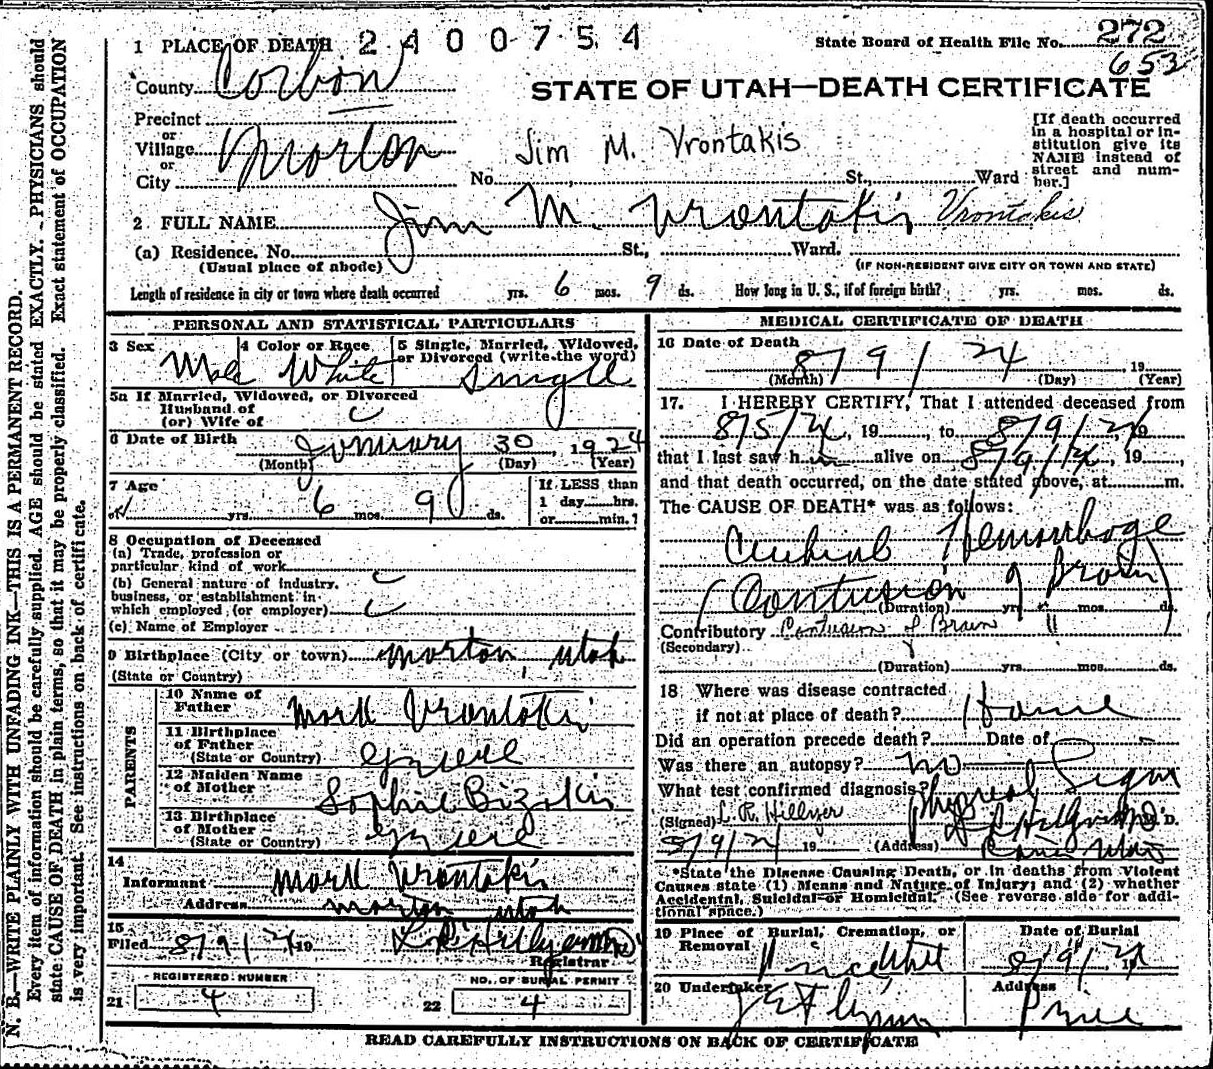 1 PLACE OF DEATH 2400754
State Board of Health File No. 272
653
County Carbon
STATE OF UTAH—DEATH CERTIFICATE
Precinct
or
Village Morton
or
City
Jim M. Vrontakis
No. St., Ward
[If death occurred
in a hospital or in-
stitution give its
NAME instead of
street and num-
ber.]
2 FULL NAME Jim M. Vrontakis Vrontakis
(a) Residence. No. St., Ward.
(Usual place of abode)
(IF NON-RESIDENT GIVE CITY OR TOWN AND STATE)
Length of residence in city or town where death occurred yrs. 6 mos. 9 ds. How long in U. S., if of foreign birth? yrs. mos. ds.
PERSONAL AND STATISTICAL PARTICULARS
3 Sex Male
4 Color or Race White
5 Single, Married, Widowed,
or Divorced (write the word)
Single
5a If Married, Widowed, or Divorced
Husband of
(or) Wife of
6 Date of Birth January 30, 1924
(Month) (Day) (Year)
7 Age
yrs. 6 mos. 9 ds.
If LESS than
1 day hrs.
or min.?
8 Occupation of Deceased
(a) Trade, profession or
particular kind of work
(b) General nature of industry,
business, or establishment in
which employed (or employer)
(c) Name of Employer
9 Birthplace (City or town) Morton, Utah
(State or Country)
PARENTS
10 Name of
Father Mark Vrontakis
11 Birthplace
of Father
(State or Country) Greece
12 Maiden Name
of Mother Sophie Bizakis
13 Birthplace
of Mother
(State or Country) Greece
14
Informant Mark Vrontakis
Address Morton Utah
15
Filed 8/9/24 19 L.R. Hillyer MD
Registrar
REGISTERED NUMBER
21 4
NO. OF BURIAL PERMIT
22 4
MEDICAL CERTIFICATE OF DEATH
16 Date of Death
8/9/24 19
(Month) (Day) (Year)
17. I HEREBY CERTIFY, That I attended deceased from
8/5/24, 19, to 8/9/24 19
that I last saw him alive on 8/9/24, 19,
and that death occurred, on the date stated above, at m.
The CAUSE OF DEATH* was as follows:
Hemorrhage
(Contusion of Brain)
(Duration) yrs. mos. ds.
Contributory Contusion of Brain "
(Secondary)
(Duration) yrs. mos. ds.
18 Where was disease contracted
if not at place of death? Home
Did an operation precede death? Date of
Was there an autopsy? no
What test confirmed diagnosis? Physical Signs
(Signed) L. R. Hillyer L R Hillyer M.D.
8/9/24 19 (Address) Utah
*State the Disease Causing Death, or in deaths from Violent
Causes state (1) Means and Nature of Injury; and (2) whether
Accidental, Suicidal or Homicidal. (See reverse side for addi-
tional space.)
19 Place of Burial, Cremation, or
Removal
Date of Burial
8/9/24 19
20 Undertaker J E Flynn
Address Price
READ CAREFULLY INSTRUCTIONS ON BACK OF CERTIFICATE
N. B.—WRITE PLAINLY WITH UNFADING INK—THIS IS A PERMANENT RECORD.
Every item of information should be carefully supplied. AGE should be stated EXACTLY. PHYSICIANS should
state CAUSE OF DEATH in plain terms, so that it may be properly classified. Exact statement of OCCUPATION
is very important. See instructions on back of certificate.